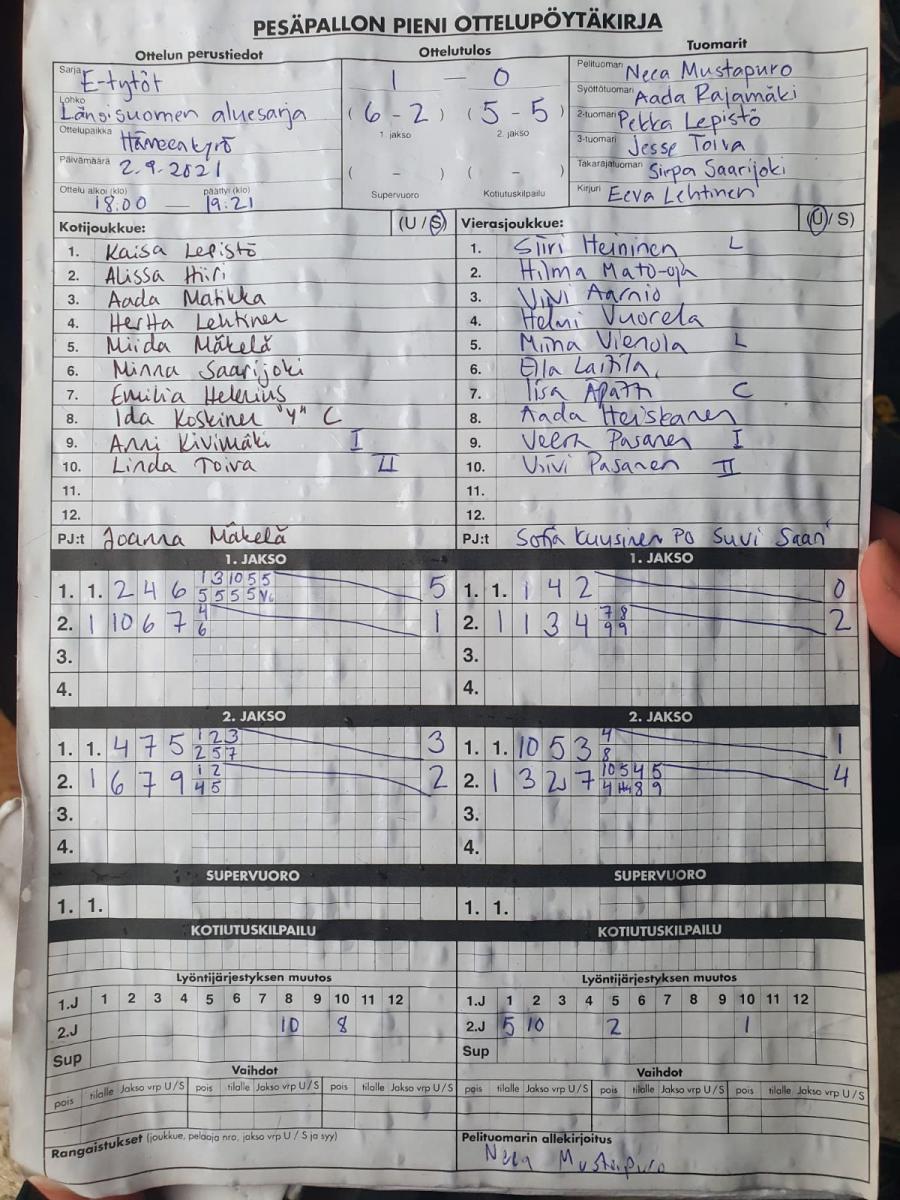 PESÄPALLON PIENI OTTELUPÖYTÄKIRJA
Ottelun perustiedot
Ottelutulos
Tuomarit
Sarja E-tytöt
Lohko Länsisuomen aluesarja
Ottelupaikka Hämeenkyrö
Päivämäärä 2.9.2021
Ottelu alkoi (klo) päättyi (klo)
18:00 — 19:21
1 — 0
( 6 - 2 ) ( 5 - 5 )
1. jakso 2. jakso
( - ) ( - )
Supervuoro Kotiutuskilpailu
Pelituomari Neea Mustapuro
Syöttötuomari Aada Rajamäki
2-tuomari Pekka Lepistö
3-tuomari Jesse Toiva
Takarajatuomari Sirpa Saarijoki
Kirjuri Eeva Lehtinen
Kotijoukkue: (U / S)
1. Kaisa Lepistö
2. Alissa Hiiri
3. Aada Matikka
4. Hertta Lehtinen
5. Miida Mäkelä
6. Minna Saarijoki
7. Emilia Helenius
8. Ida Koskinen "Y" C
9. Anni Kivimäki I
10. Linda Toiva II
11.
12.
PJ:t Joanna Mäkelä
Vierasjoukkue: (U / S)
1. Siiri Heininen L
2. Hilma Mato-oja
3. Viivi Aarnio
4. Helmi Vuorela
5. Miina Vienola L
6. Ella Laitila
7. Iisa C
8. Aada Heiskanen
9. Veera Pasanen I
10. Viivi Pasanen II
11.
12.
PJ:t Sofia Kuusinen PO Suvi
1. JAKSO
1. 1. 2 4 6 1 3 10 5 5 5
5 5 5 5
2. 1 10 6 7 4 1
6
3.
4.
1. JAKSO
1. 1. 1 4 2 0
2. 1 1 3 4 7 8 2
9 9
3.
4.
2. JAKSO
1. 1. 4 7 5 1 2 3 3
2 5 7
2. 1 6 7 9 1 2 2
4 5
3.
4.
2. JAKSO
1. 1. 10 5 3 4 1
8
2. 1 3 2 7 10 5 4 5 4
4 8 9
3.
4.
SUPERVUORO
1. 1.
SUPERVUORO
1. 1.
KOTIUTUSKILPAILU
KOTIUTUSKILPAILU
Lyöntijärjestyksen muutos
1.J 1 2 3 4 5 6 7 8 9 10 11 12
2.J 10 8
Sup
Lyöntijärjestyksen muutos
1.J 1 2 3 4 5 6 7 8 9 10 11 12
2.J 5 10 2 1
Sup
Vaihdot
pois tilalle Jakso vrp U / S pois tilalle Jakso vrp U / S pois tilalle Jakso vrp U / S
Vaihdot
pois tilalle Jakso vrp U / S pois tilalle Jakso vrp U / S pois tilalle Jakso vrp U / S
Rangaistukset (joukkue, pelaaja nro, jakso vrp U / S ja syy)
Pelituomarin allekirjoitus
Neea Mustapuro